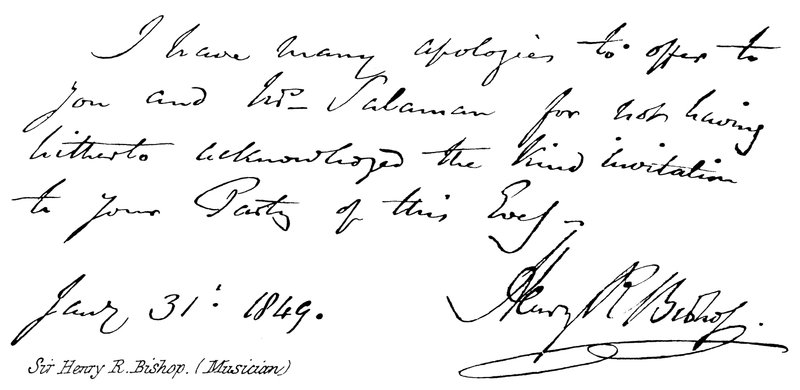 I have many apologies to offer to
you and Mrs Salaman for not having
hitherto acknowledged the kind invitation
to your Party of this Eveg —
Jany 31st 1849.
Henry R. Bishop.
Sir Henry R. Bishop. (Musician)